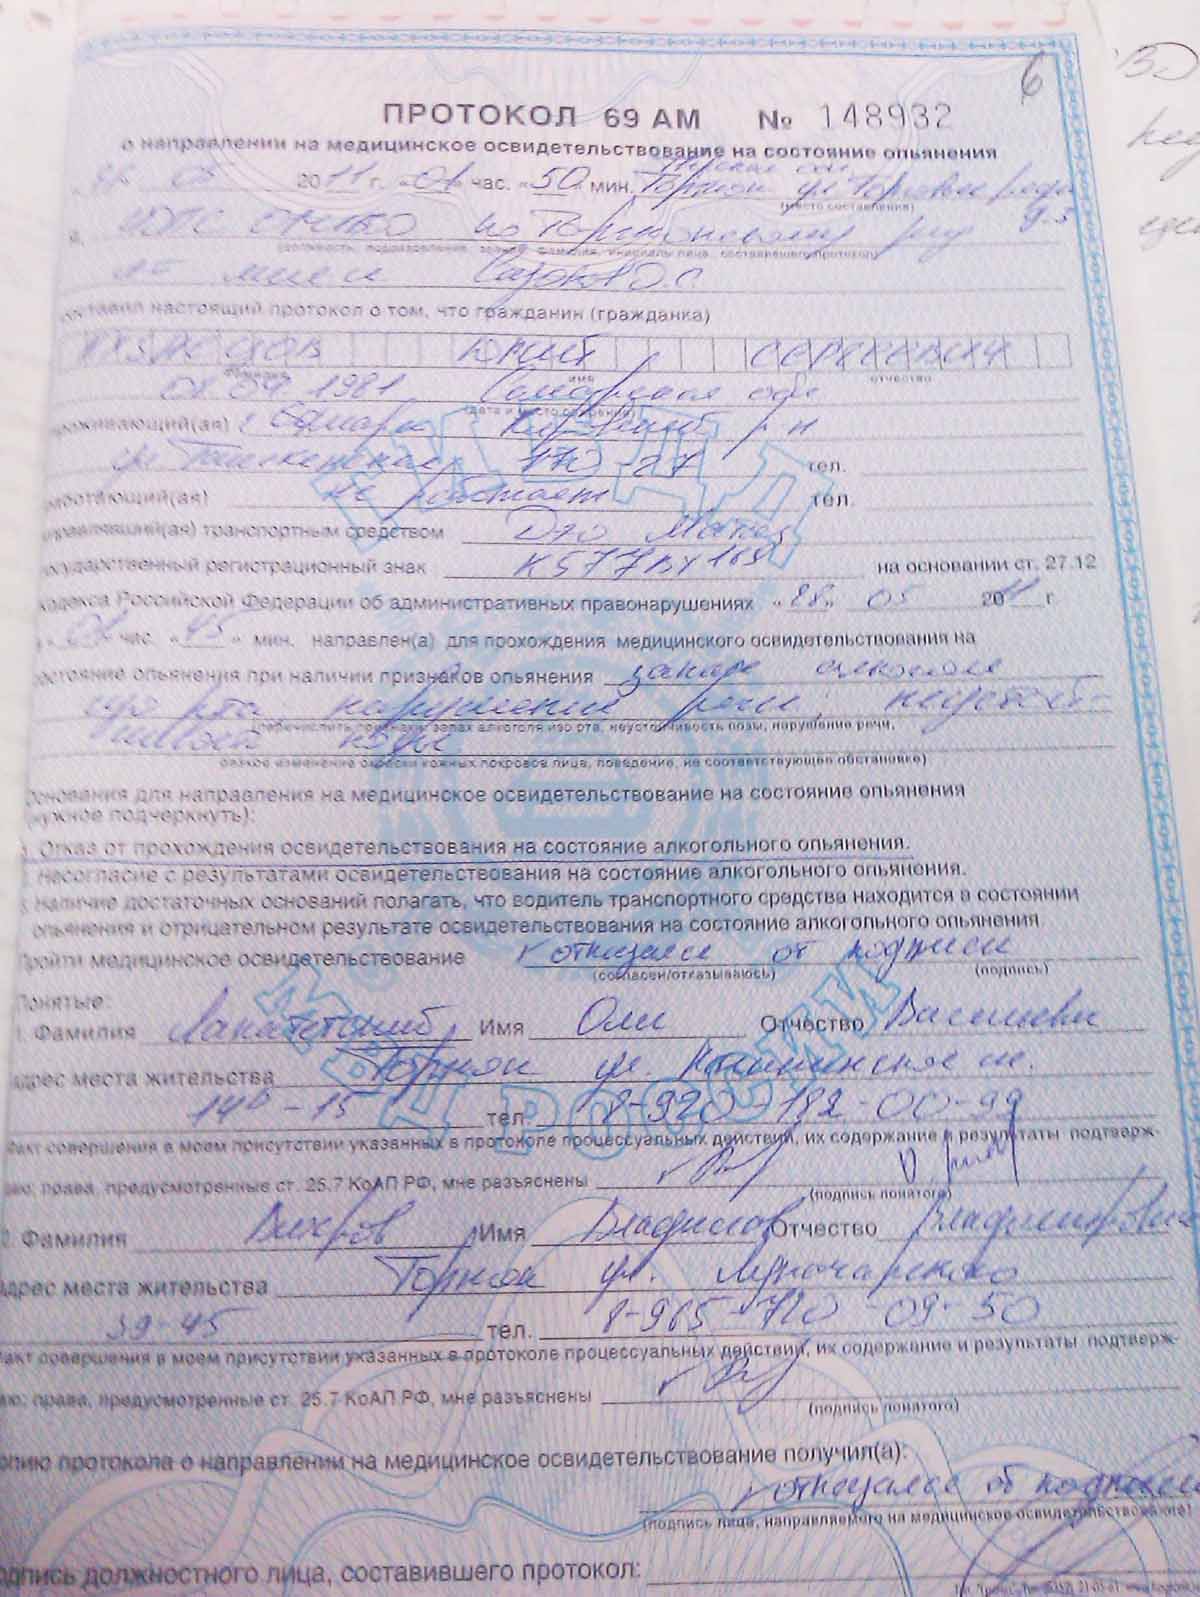 6
ПРОТОКОЛ 69 АМ № 148932
о направлении на медицинское освидетельствование на состояние опьянения
05 2011 г. «01» час. «50» мин. Торжок ул
(место составления)
ДПС по Торжокскому р-ну
(должность, подразделение, звание, фамилия, инициалы лица, составившего протокол)
составил настоящий протокол о том, что гражданин (гражданка)
ЮРИЙ СЕРГЕЕВИЧ
фамилия имя отчество
1981 Самарская обл
(дата и место рождения)
проживающий(ая) г Самара Кировский р-н
ул Ташкентская 170-27 тел.
работающий(ая) не работает тел.
управлявший(ая) транспортным средством Дэо Матиз
государственный регистрационный знак К577ВУ163 на основании ст. 27.12
Кодекса Российской Федерации об административных правонарушениях «28» 05 2011 г
в «01» час. «45» мин. направлен(а) для прохождения медицинского освидетельствования на
состояние опьянения при наличии признаков опьянения запаре алкоголя
изо рта, нарушение речи, неустой
чивость позы
(перечислить признаки: запах алкоголя изо рта, неустойчивость позы, нарушение речи,
резкое изменение окраски кожных покровов лица, поведение, не соответствующее обстановке)
Основания для направления на медицинское освидетельствование на состояние опьянения
(нужное подчеркнуть):
1. Отказ от прохождения освидетельствования на состояние алкогольного опьянения.
2. Несогласие с результатами освидетельствования на состояние алкогольного опьянения.
3. Наличие достаточных оснований полагать, что водитель транспортного средства находится в состоянии
опьянения и отрицательном результате освидетельствования на состояние алкогольного опьянения.
Пройти медицинское освидетельствование отказался от подписи
(согласен/отказываюсь) (подпись)
Понятые:
1. Фамилия Имя Отчество Васильеви
Адрес места жительства Торжок ул. Калининское ш.
14б-15 тел. 8-920-182-00-99
Факт совершения в моем присутствии указанных в протоколе процессуальных действий, их содержание и результаты подтверж-
даю; права, предусмотренные ст. 25.7 КоАП РФ, мне разъяснены
(подпись понятого)
2. Фамилия Вихров Имя Владислав Отчество Владимирович
Адрес места жительства Торжок ул. Луночарского
39-45 тел. 8-965-720-09-50
Факт совершения в моем присутствии указанных в протоколе процессуальных действий, их содержание и результаты подтверж-
даю; права, предусмотренные ст. 25.7 КоАП РФ, мне разъяснены
(подпись понятого)
Копию протокола о направлении на медицинское освидетельствование получил(а):
отказался от подписи
(подпись лица, направляемого на медицинское освидетельствование)
Подпись должностного лица, составившего протокол: